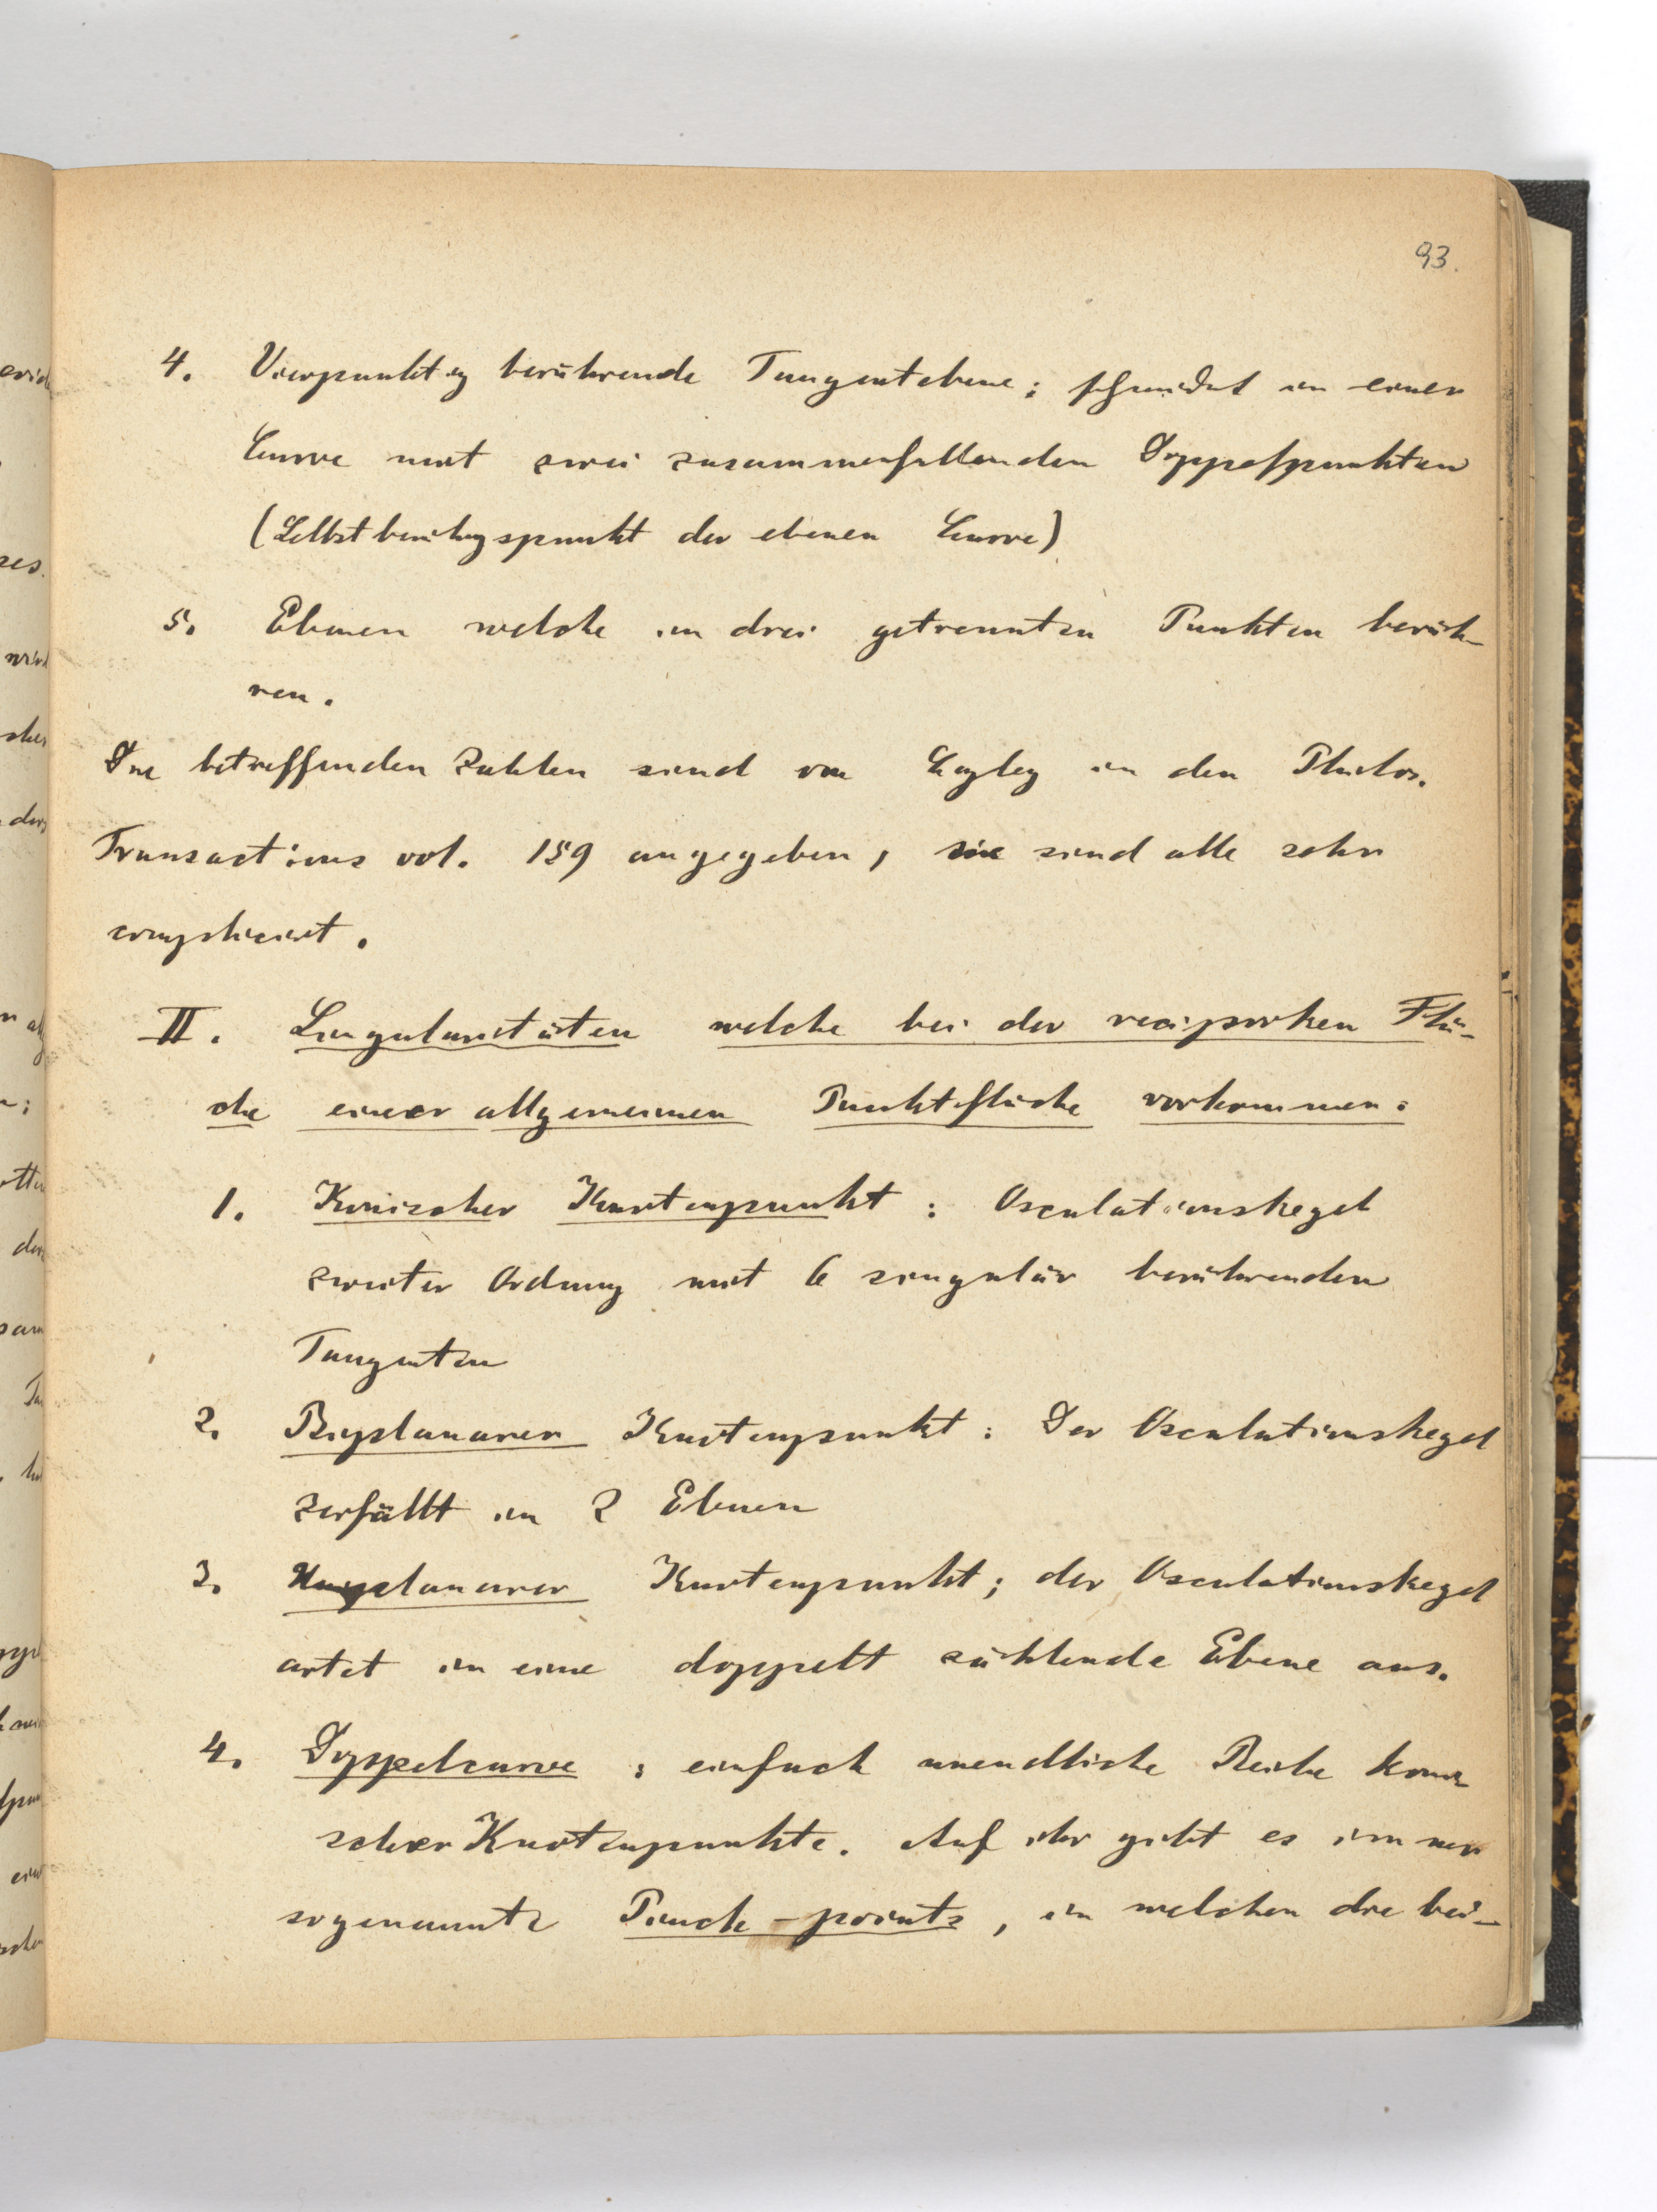 93.
4. Vierpunktig berührende Tangentebene; schneidet in einer
Curve mit zwei zusammenfallenden Doppelpunkten
(Selbstberühgspunkt der ebenen Curve)
5. Ebenen welche in drei getrennten Punkten berüh-
ren.
Die betreffenden Zahlen sind von Cayley in den Philos.
Transactions vol. 159 angegeben, sie sind alle sehr
compliciert.
II. Singularitäten welche bei der reciproken Flä-
che einer allgemeinen Punktfläche vorkommen:
1. Konischer Knotenpunkt: Osculationskegel
zweiter Ordnung mit 6 singulär berührenden
Tangenten
2. Biplanarer Knotenpunkt: Der Osculationskegel
zerfällt in 2 Ebenen
3. Uniplanarer Knotenpunkt; der Osculationskegel
artet in eine doppelt zählende Ebene aus.
4. Doppelcurve; einfach unendliche Reihe koni
scher Knotenpunkte. Auf ihr gibt es immer
sogenannte Pinch-points, in welchen die bei-